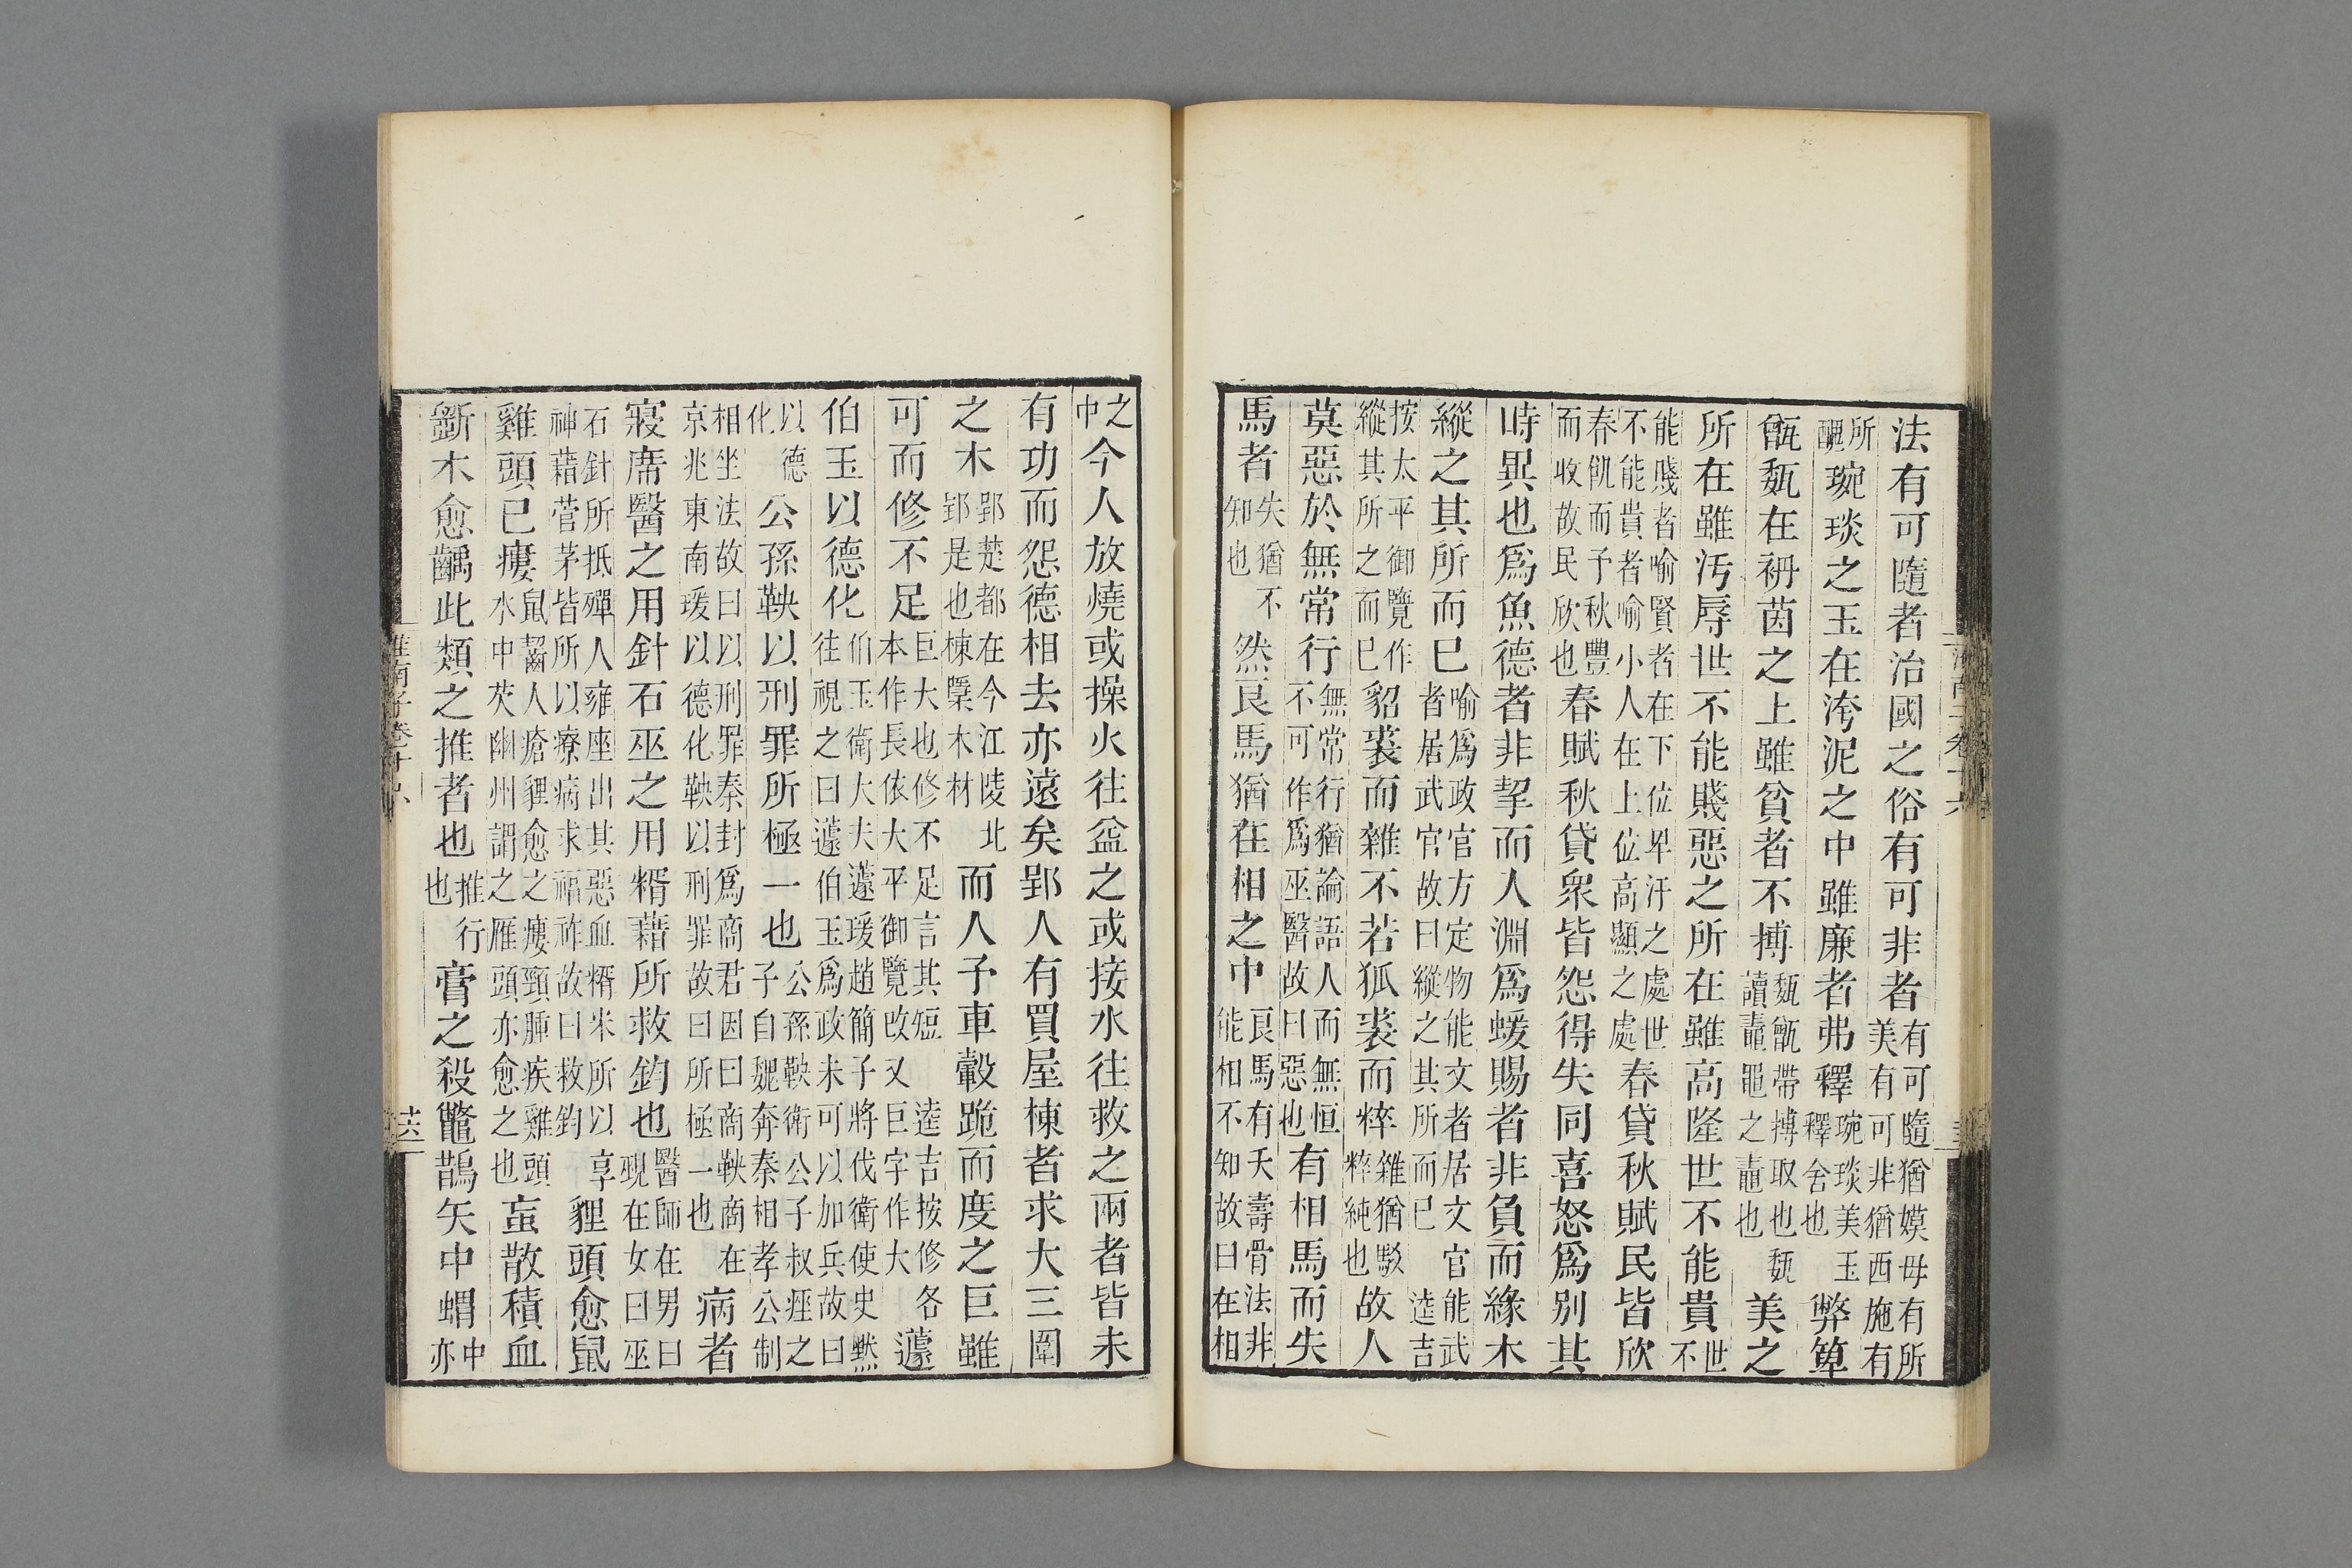 法有可隨者治國之俗有可非者有可隨猶嫫母有所美有可非猶西施有
所醜琬琰之玉在洿泥之中雖廉者弗釋琬琰美玉釋舍也弊箄
甑瓾在袇茵之上雖貧者不搏瓾甑帶搏取也瓾讀鼃黽之鼃也美之
所在雖汚辱世不能賤惡之所在雖高隆世不能貴世不
能賤者喻賢者在下位卑汙之處世不能貴者喻小人在上位高顯之處春貸秋賦民皆欣
春飢而予秋豐而收故民欣也春賦秋貸衆皆怨得失同喜怒爲別其
時異也爲魚德者非挈而入淵爲蝯賜者非負而緣木
縱之其所而已喻爲政官方定物能文者居文官能武者居武官故曰縱之其所而已逵吉
按太平御覽作縱其所之而已貂裘而雜不若狐裘而粹雜猶駁粹純也故人
莫惡於無常行無常行猶論語人而無恒不可作爲巫醫故曰惡也有相馬而失
馬者失猶不知也然良馬猶在相之中良馬有夭壽骨法非能相不知故曰在相
之中今人放燒或操火往益之或接水往救之兩者皆未
有功而怨德相去亦遠矣郢人有買屋棟者求大三圍
之木郢楚都在今江陵北郢是也棟檃木材而人予車轂跪而度之巨雖
可而修不足巨大也修不足言其短逵吉按修各本作長依大平御覽改又巨字作大蘧
伯玉以德化伯玉衛大夫蘧瑗趙簡子將伐衛使史黙往視之曰蘧伯玉爲政未可以加兵故曰
以德化公孫鞅以刑罪所極一也公孫鞅衛公子叔痤之子自魏奔秦相孝公制
相坐法故曰以刑罪秦封爲商君因曰商鞅商在京兆東南瑗以德化鞅以刑罪故曰所極一也病者
寢席醫之用針石巫之用糈藉所救鈞也醫師在男曰覡在女曰巫
石針所抵殫人雍座出其惡血糈米所以享神藉菅茅皆所以療病求福祚故曰救鈞貍頭愈鼠
雞頭已瘻鼠齧人瘡貍愈之瘻頸腫疾雞頭水中芡幽州謂之雁頭亦愈之也䖟散積血
斵木愈齲此類之推者也推行也膏之殺鼈鵲矢中蝟中亦
淮南子卷十六
十六